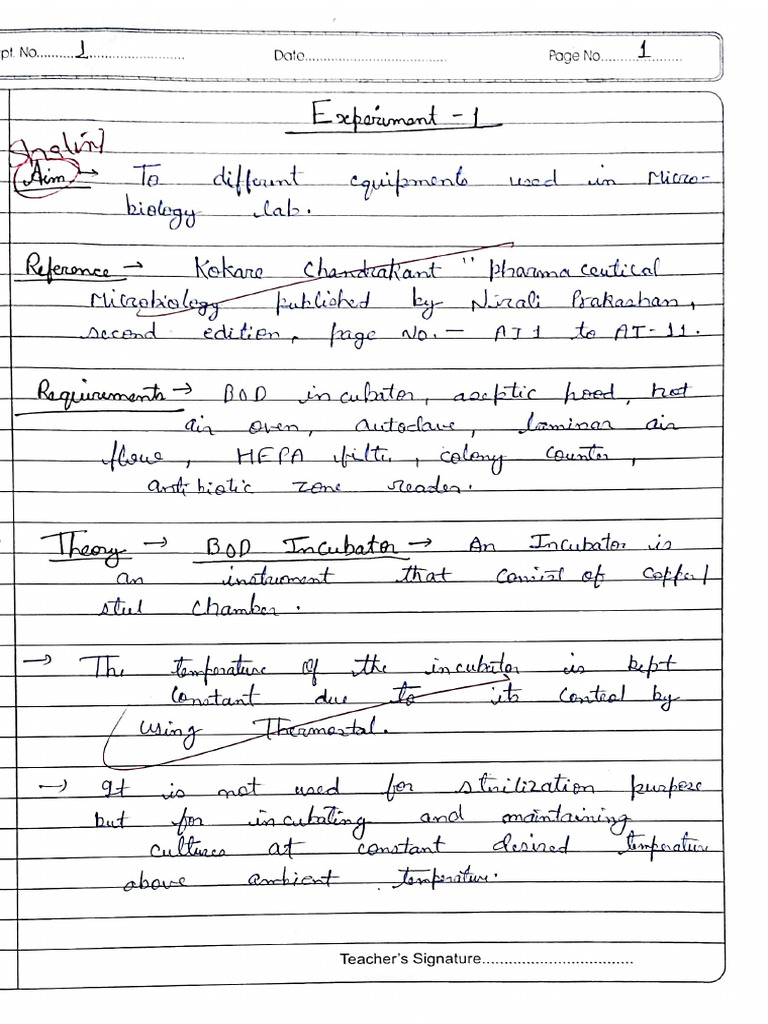 pt. No. 1 Date Page No. 1
Experiment - 1
Aim → To different equipments used in Micro-
biology lab.
Reference → Kokare Chandrakant " pharmaceutical
Microbiology published by Nirali Prakashan,
second edition, page No. - AI1 to AI-11.
Requirements → BOD incubator, aseptic hood, hot
air oven, autoclave, laminar air
flow, HEPA filter, colony counter,
antibiotic zone reader.
Theory → BOD Incubator → An Incubator is
an instrument that consist of copper/
steel chamber.
→ The temperature of the incubator is kept
constant due to its control by
using Thermostal.
→ It is not used for sterilization purpose
but for incubating and maintaining
cultures at constant desired temperature
above ambient temperature.
Teacher's Signature